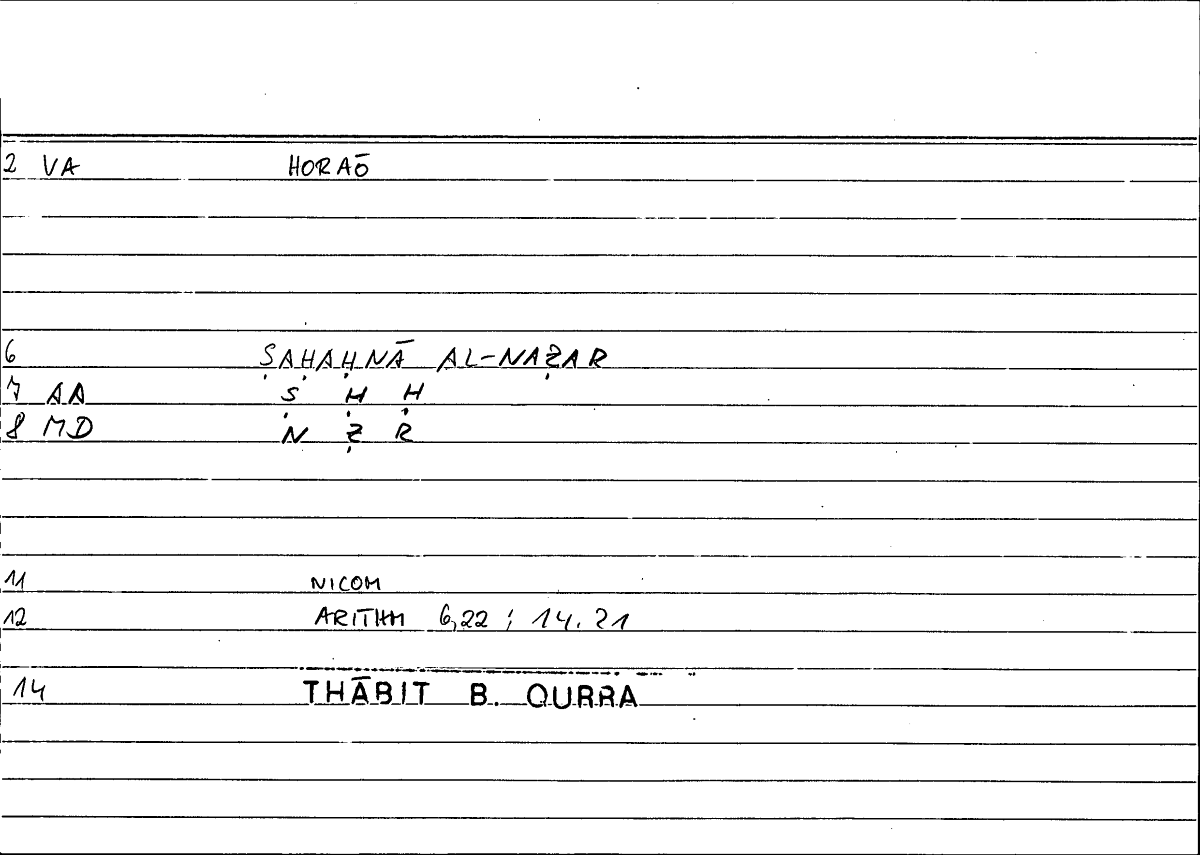 2 VA HORAŌ
6 ṢAḤAḤNĀ AL-NAẒAR
7 AA Ṣ Ḥ Ḥ
8 MD N Ẓ R
11 NICOM
12 ARITHM 6,22 ; 14.21
14 THĀBIT B. QURRA